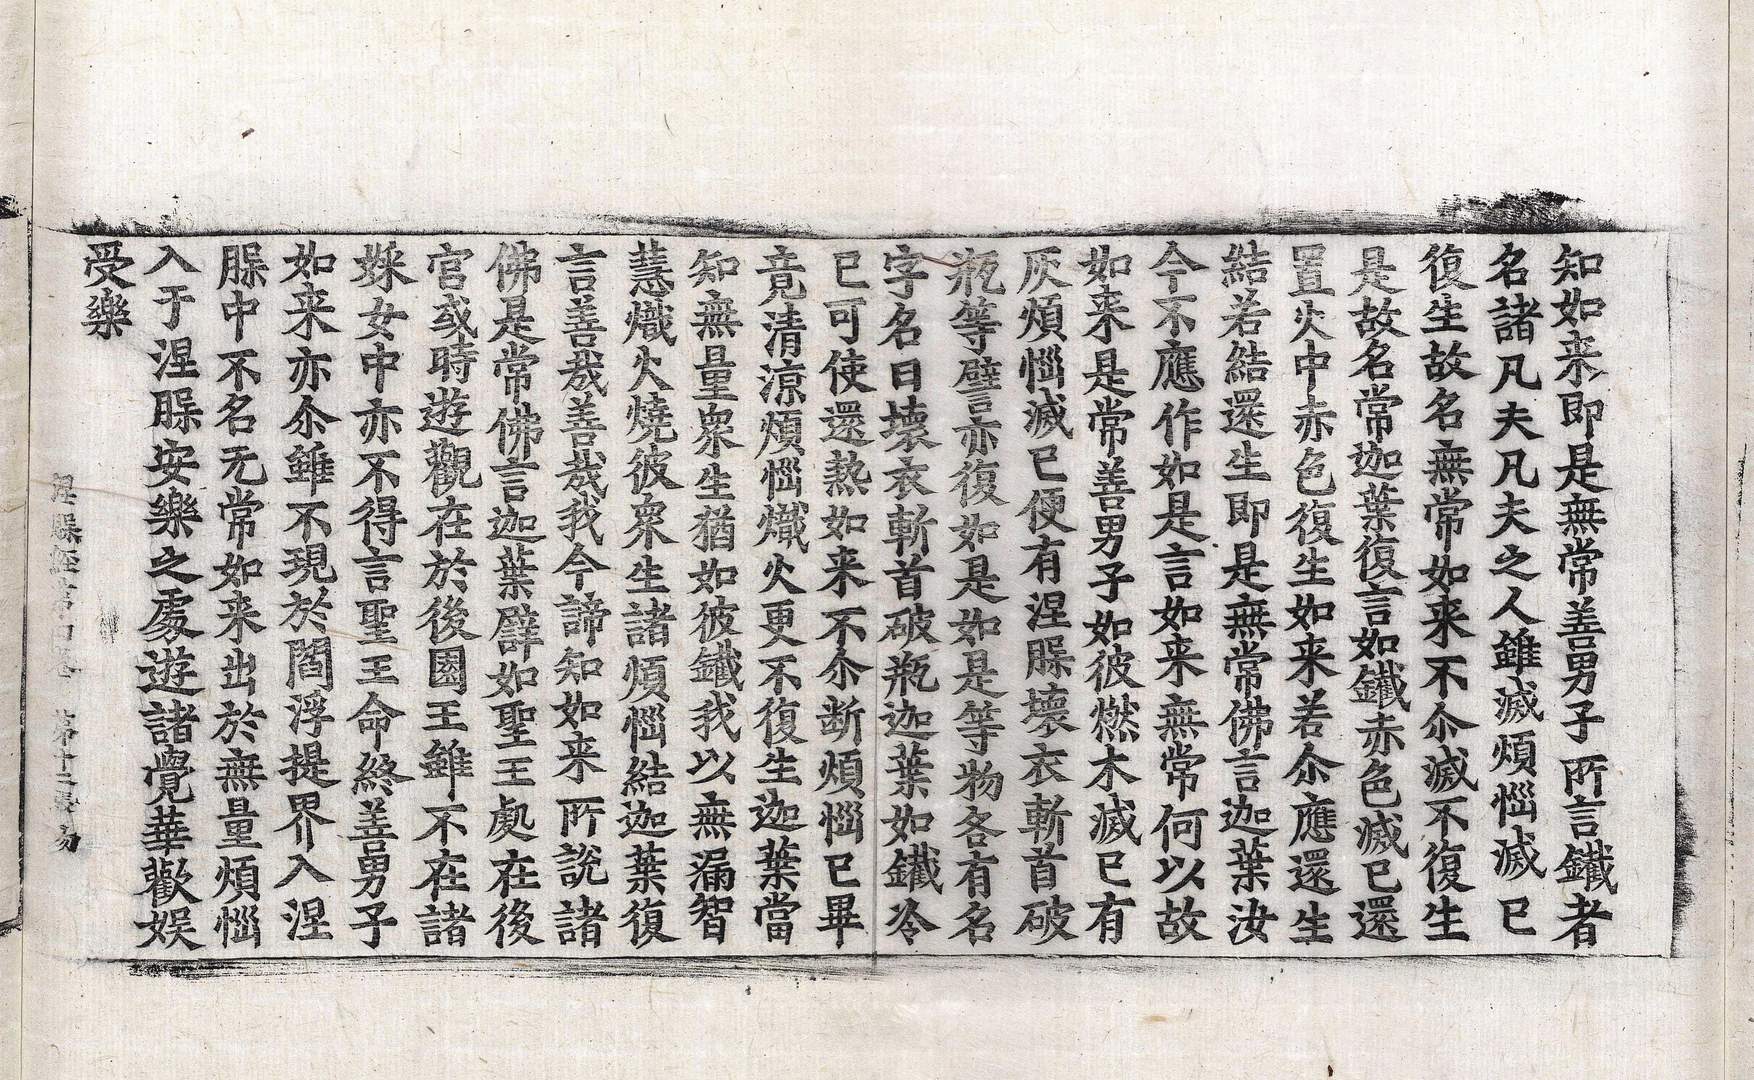 知如来即是無常善男子所言鐵者
名諸凡夫凡夫之人雖滅煩惱滅已
復生故名無常如来不尒滅不復生
是故名常迦葉復言如鐵赤色滅已還
置火中赤色復生如来若尒應還生
結若結還生即是無常佛言迦葉汝
今不應作如是言如来無常何以故
如来是常善男子如彼燃木滅已有
灰煩惱滅已便有涅槃壞衣斬首破
瓶等譬亦復如是如是等物各有名
字名曰壞衣斬首破瓶迦葉如鐵冷
已可使還熱如来不尒断煩惱已畢
竟清凉煩惱熾火更不復生迦葉當
知無量衆生猶如彼鐵我以無漏智
慧熾火燒彼衆生諸煩惱結迦葉復
言善哉善哉我今諦知如来所說諸
佛是常佛言迦葉譬如聖王處在後
宫或時遊觀在於後園王雖不在諸
婇女中亦不得言聖王命終善男子
如来亦尒雖不現於閻浮提界入涅
槃中不名无常如来出於無量煩惱
入于涅槃安樂之處遊諸覺華歡娱
受樂
涅槃經第四卷 第十二張 易